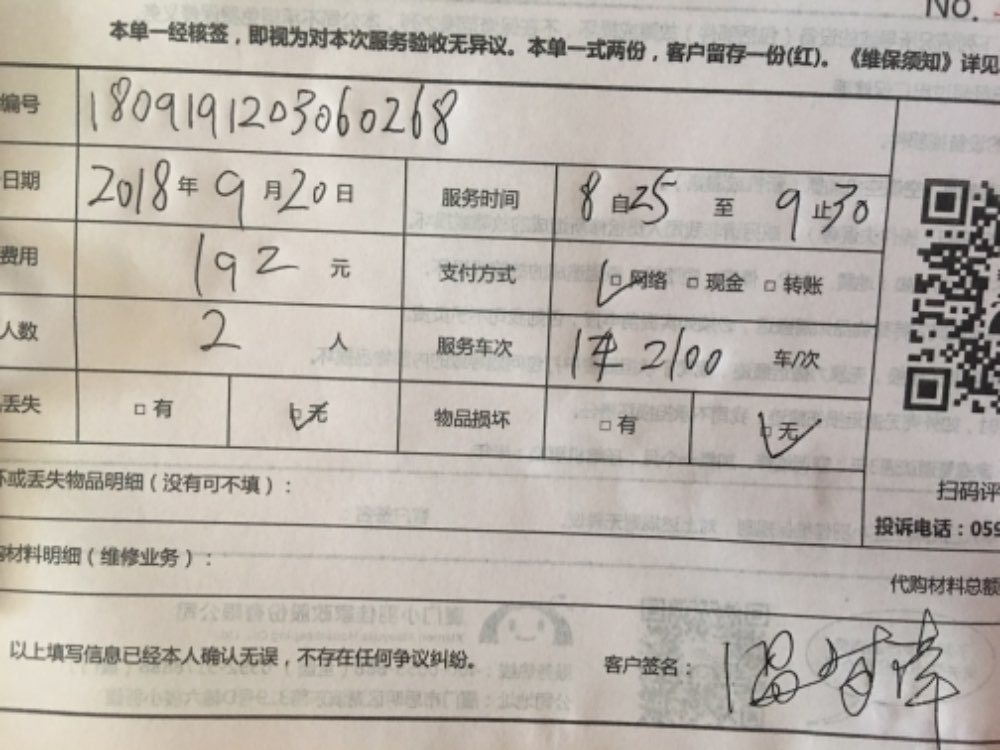 No.
本单一经核签，即视为对本次服务验收无异议。本单一式两份，客户留存一份(红)。《维保须知》详见
编号 180919120306 0268
日期 2018年9月20日 服务时间 8自25至9止30
费用 192元 支付方式 □网络 □现金 □转账
人数 2人 服务车次 2100 车/次
丢失 □有 □无 物品损坏 □有 □无
坏或丢失物品明细（没有可不填）：
扫码评
投诉电话：059
购材料明细（维修业务）：
代购材料总额
以上填写信息已经本人确认无误，不存在任何争议纠纷。 客户签名：